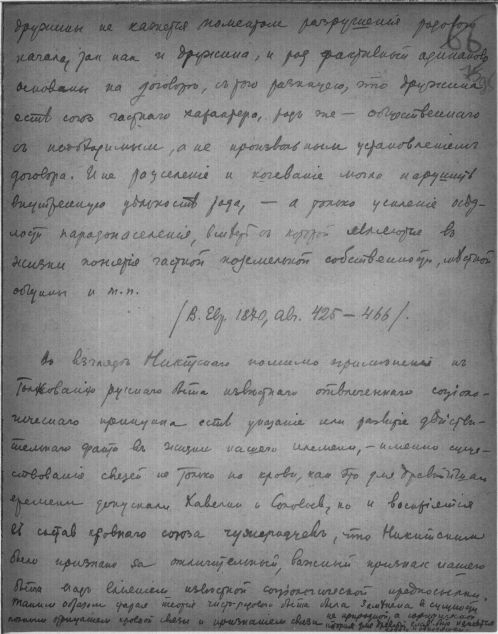 дружины не кажется моментом разрушенiя родового
начала, так как и дружина, и род фиктивный одинаково
основаны на договорѣ, съ тою разницею, что дружина
есть союз частнаго характера, родъ же — общественнаго
съ необходимым, а не произвольным установленiем
договора. И не разселенiе и кочеванiе могло нарушить
внутреннюю цѣльность рода, — а только усиленiе осѣд-
лости народонаселенiя, вмѣстѣ съ которой являются въ
жизни понятiя частной поземельной собственности, мѣстной
общины и т.п.
/В. Евр. 1870, Авг. 425 – 466/.
Во взглядѣ Никитскаго помимо примѣненiя къ
толкованiю русскаго быта извѣстнаго отвлеченнаго соцiоло-
гическаго принципа есть указанiе или развитiе дѣйстви-
тельнаго факта въ жизни нашего племени, – именно суще-
ствованiе связей не только по крови, как это для древнѣйшаго
времени допускали Кавелин и Соловьев, но и воспрiятiя
въ состав кровнаго союза чужеродцевъ, что Никитским
было признано за отличительный, важный признак нашего
быта подъ влiянiем извѣстной соцiологической предпосылки.
Таким образом теорiя чисто-родового быта была замѣнена в сущности
полным отрицанiем кровной связи и признанiем связи не природной, а
66